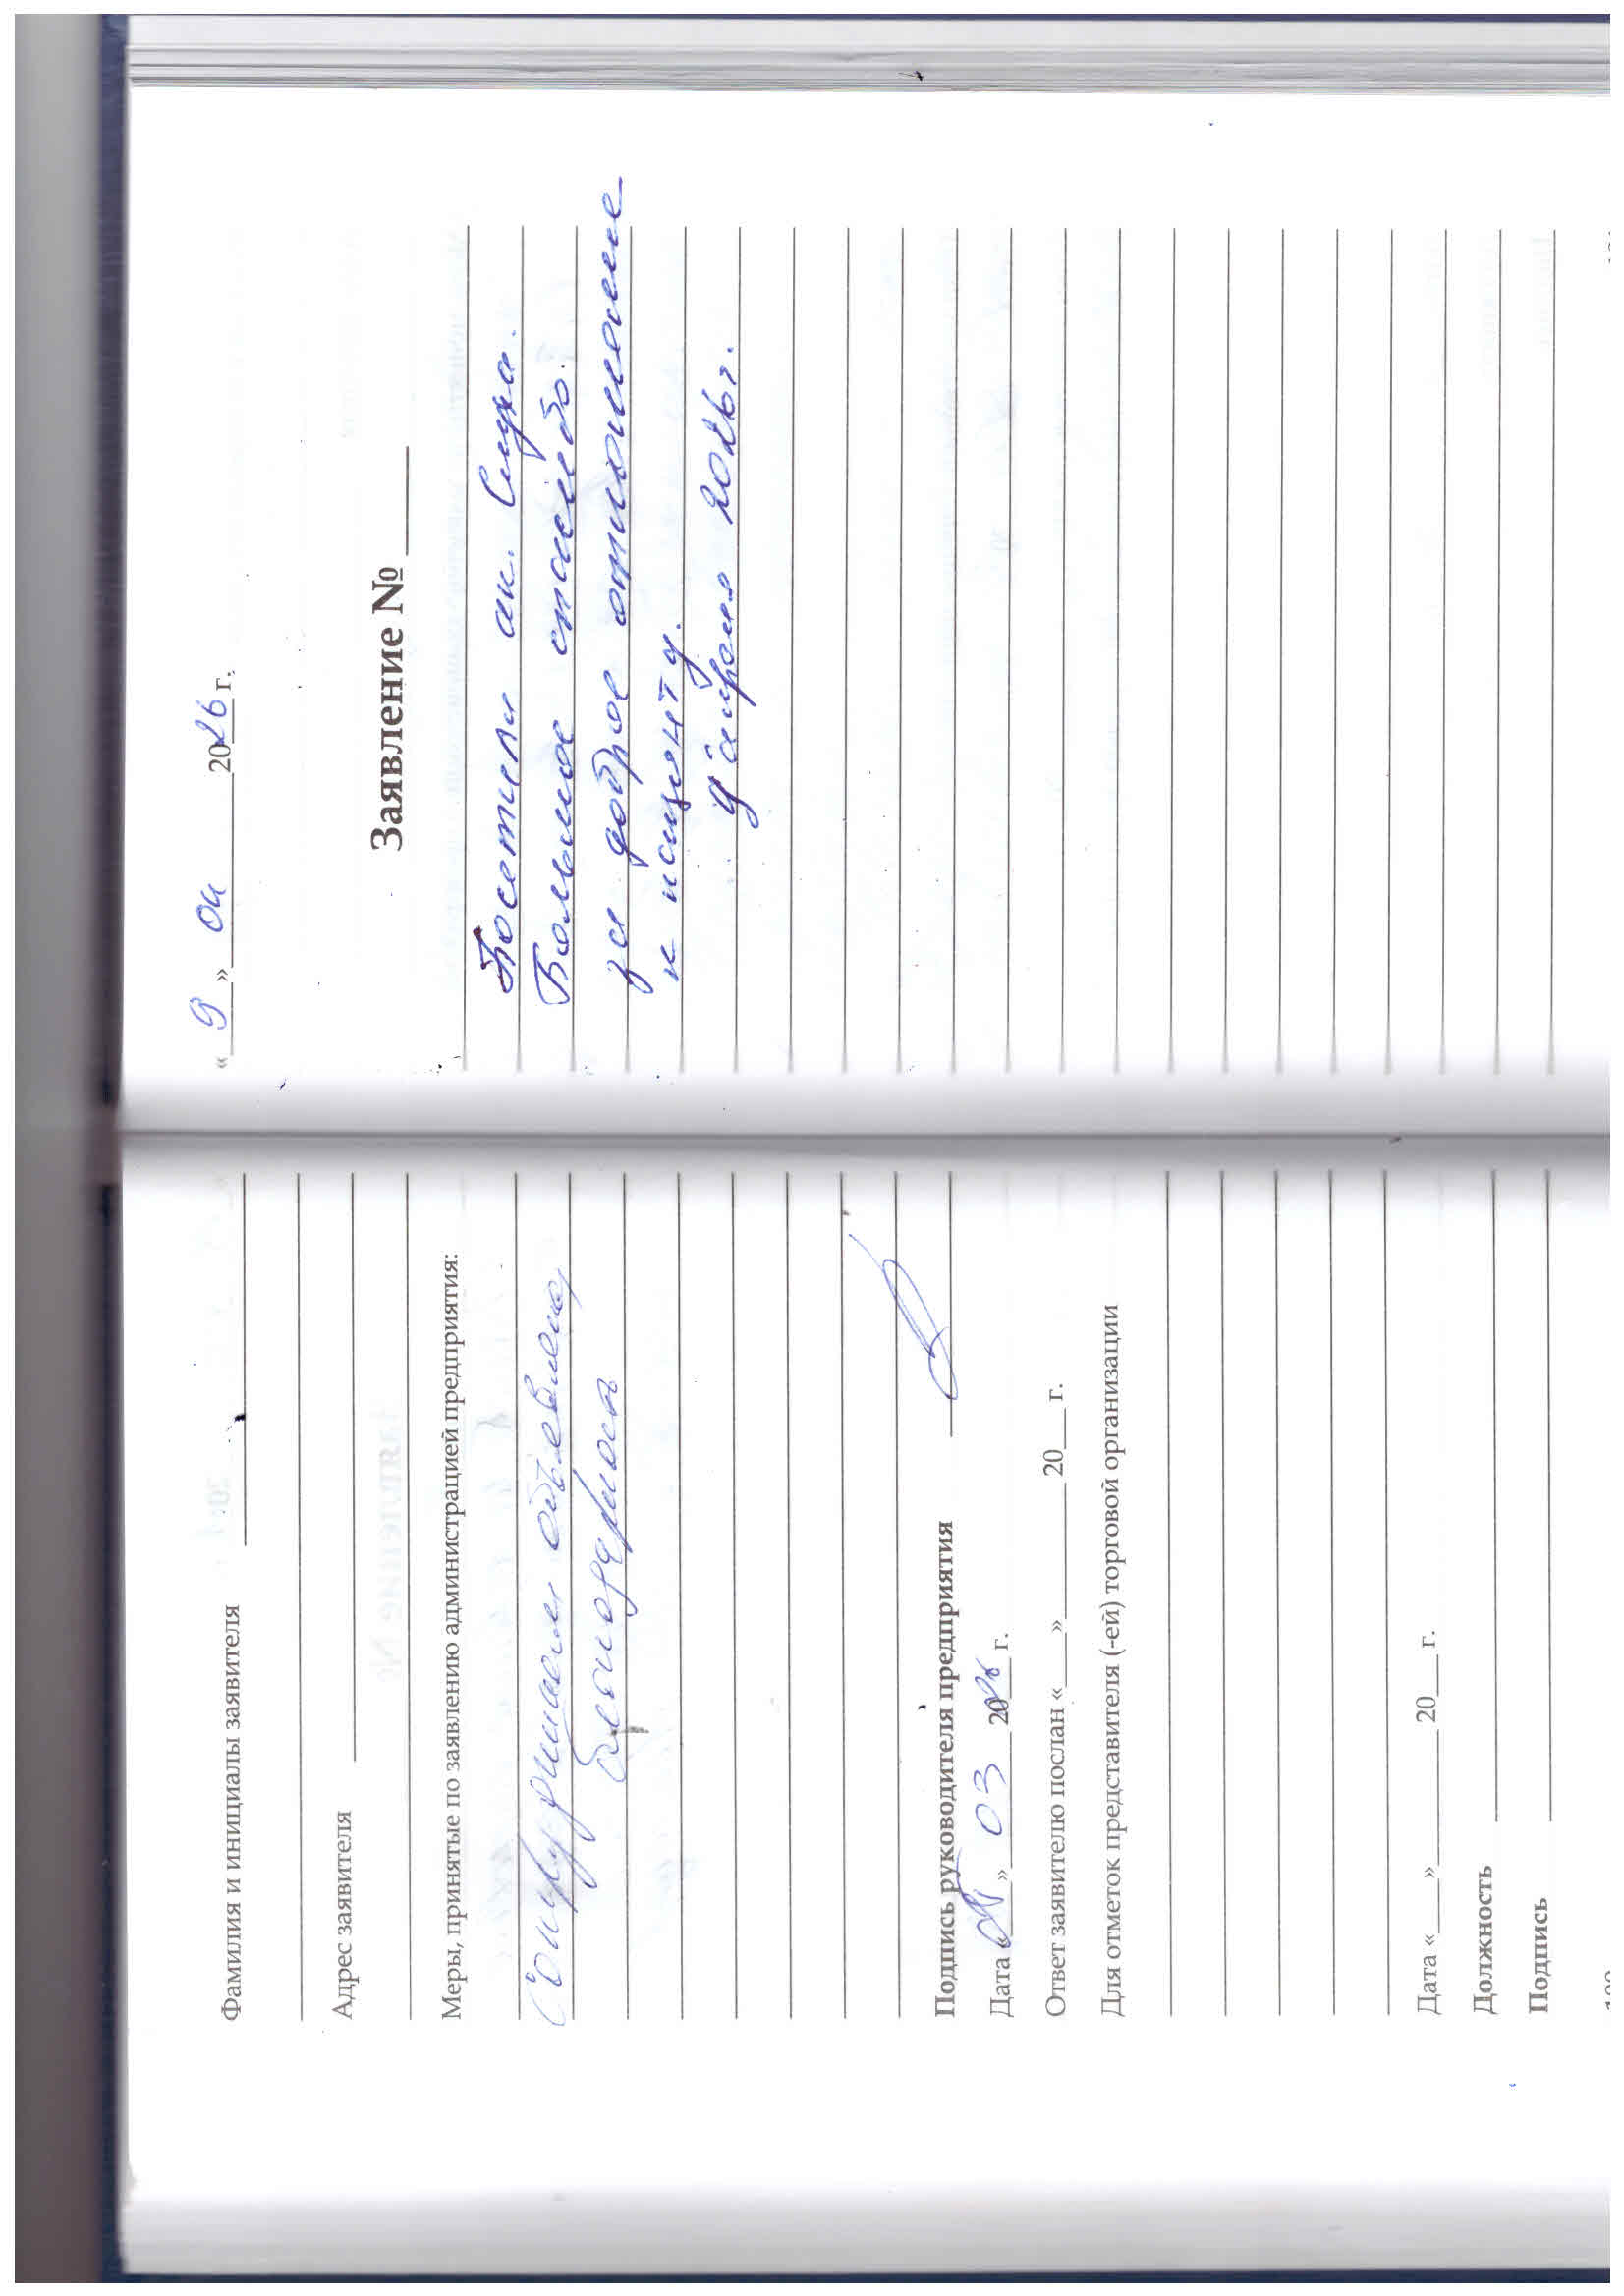 Фамилия и инициалы заявителя
Адрес заявителя
Меры, принятые по заявлению администрацией предприятия:
Сотрудникам объявлена
благодарность
Подпись руководителя предприятия
Дата « » 03 2026 г.
Ответ заявителю послан « » 20 г.
Для отметок представителя (-ей) торговой организации
Дата « » 20 г.
Должность
Подпись
« 9 » 04 2026 г.
Заявление №
Посетили ак. Слуха.
Большое спасибо.
за доброе отношение
к пациенту.
9 апреля 2026г.